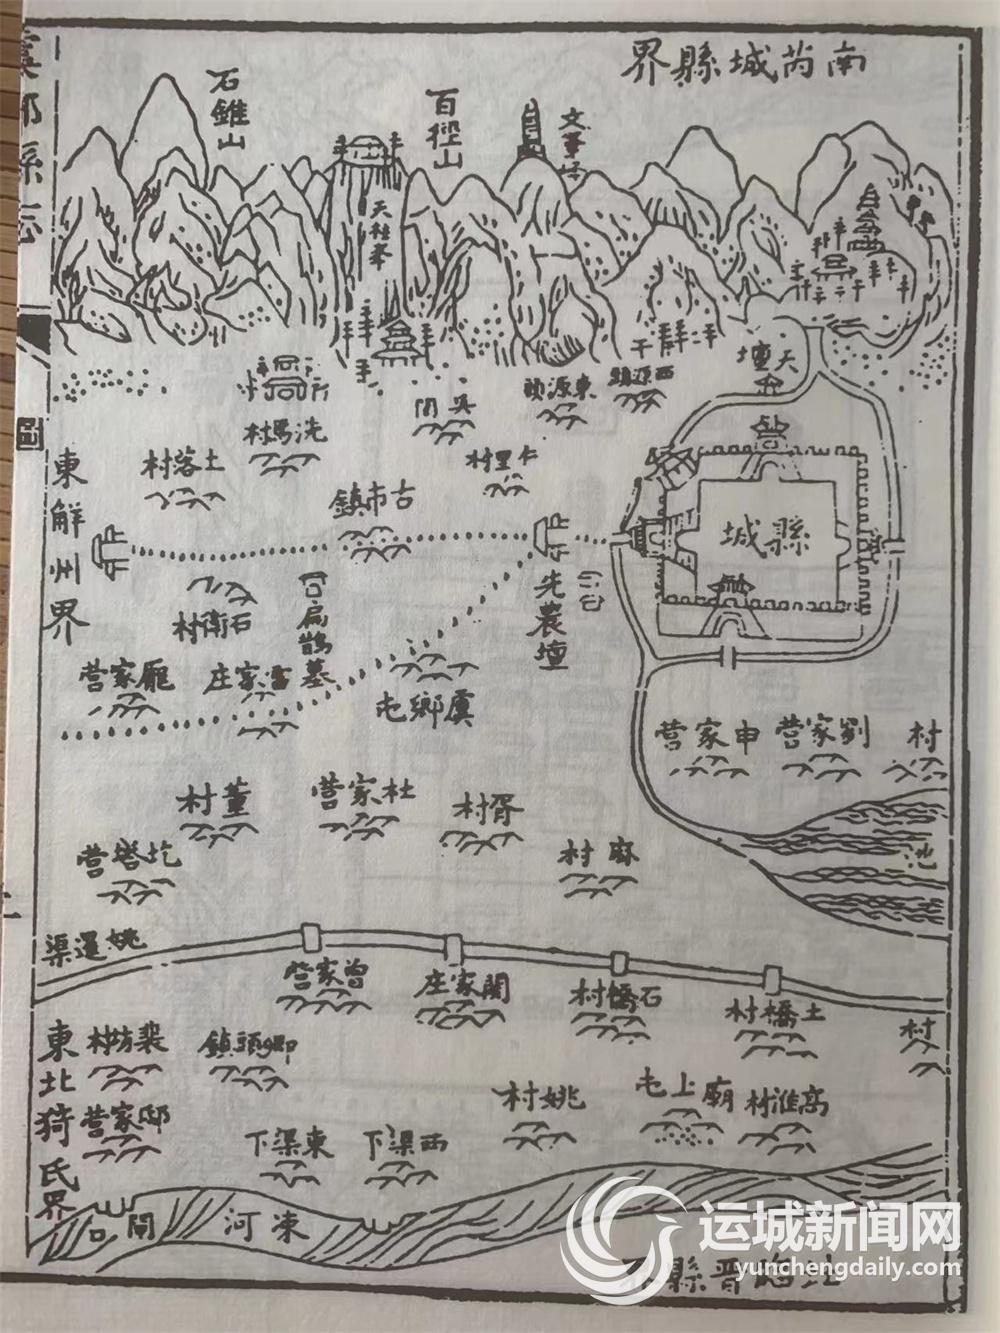 虞鄉縣志
圖
南芮城縣界
石錐山
百徑山
天柱峯
天壇
西源頭
東源頭
吳閆
洗馬村
土落村
仁里村
古市鎮
東解州界
縣城
先農壇
扁鵲墓
石衛村
雷家庄
龎家营
虞鄉屯
申家营
劉家营
村
董村
杜家营
胥村
麻村
圪塔营
池
姚暹渠
曾家营
關家庄
石橋村
土橋村
村
東北猗氏界
裴坊村
卿頭鎮
邸家营
姚村
廟上屯
高淮村
東渠下
西渠下
涑河
北臨晋縣界
运城新闻网
yunchengdaily.com